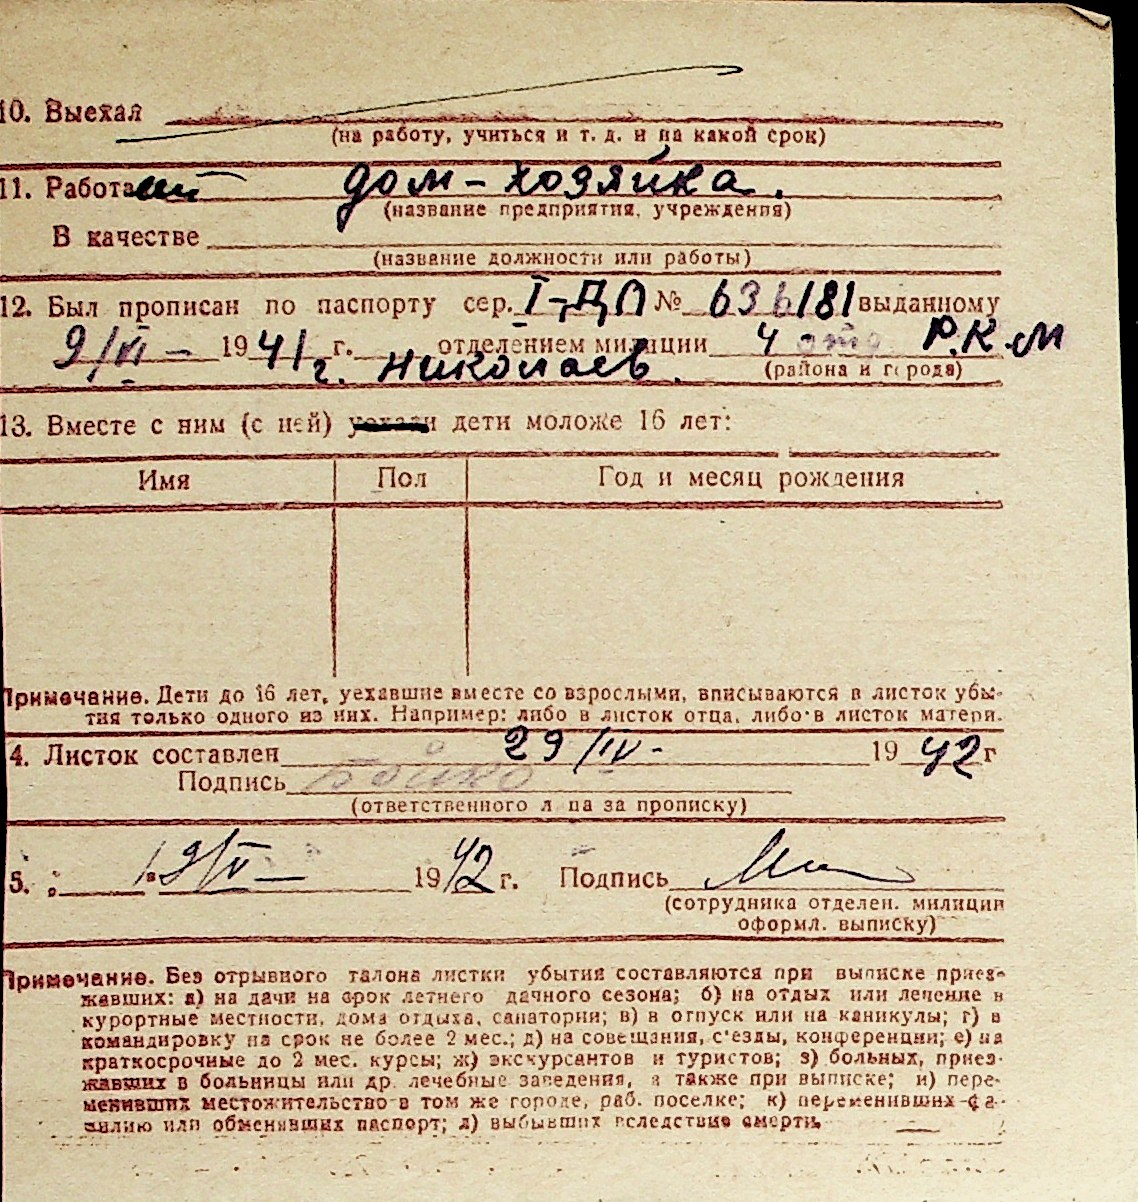 10. Выехал
(на работу, учиться и т. д. и на какой срок)
11. Работа дом-хозяйка.
(название предприятия, учреждения)
В качестве
(название должности или работы)
12. Был прописан по паспорту сер. I-ДЛ № 636181 выданному
9/VI – 1941 г. отделением милиции 4 отд Р.К.М
г. Николаев.
(района и города)
13. Вместе с ним (с ней) уехали дети моложе 16 лет:
Имя Пол Год и месяц рождения
Примечание. Дети до 16 лет, уехавшие вместе со взрослыми, вписываются в листок убы-
тия только одного из них. Например: либо в листок отца, либо в листок матери.
4. Листок составлен 29/IV- 1942 г
Подпись Бойко
(ответственного лица за прописку)
5. 19/V – 1942 г. Подпись
(сотрудника отделен. милиции
оформл. выписку)
Примечание. Без отрывного талона листки убытия составляются при выписке приез-
жавших: а) на дачи на срок летнего дачного сезона; б) на отдых или лечение в
курортные местности, дома отдыха, санатории; в) в отпуск или на каникулы; г) в
командировку на срок не более 2 мес.; д) на совещания, с'езды, конференции; е) на
краткосрочные до 2 мес. курсы; ж) экскурсантов и туристов; з) больных, приез-
жавших в больницы или др. лечебные заведения, а также при выписке; и) пере-
менивших местожительство в том же городе, раб. поселке; к) переменивших фа-
милию или обменявших паспорт; л) выбывших вследствие смерти.